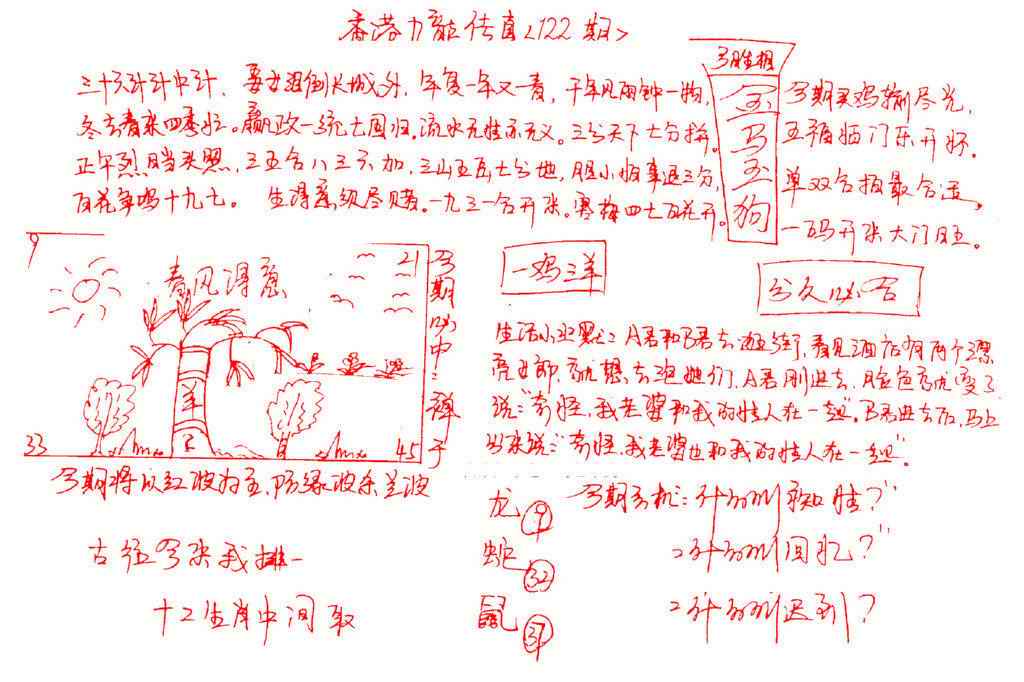 香港九龍传真<122期>
三十六计计中计、要女泪倒长城外,年复一年又一春,千年见两钟一物,
冬去春来四季忙。嬴政一统七国归。流水无性亦无义。三分天下七分拚。
正午烈日当头照,三五合八三六加,三山五岳七分地,胆小怕事退三分,
百花争鸣十九七。 生得高级尽贱。一九三一合开来。寒梅四七百花开。
今期生相
金马玉狗
今期买鸡输尽光,
五福临门乐开怀。
单双合拍最合适,
一码开来大门旺。
9
21
春风得意
羊
33
45
今期必中:禅子
一鸡三羊
分久必合
生活小幽默: A君和B君去逛街,看见酒店有两个漂
亮女郎,就想去泡她们,A君刚进去,脸色就变了
说:"奇怪,我老婆和我的情人在一起"。B君进去后,马上
出来说:"奇怪,我老婆也和我的情人在一起"。
今期将以红波为主,防绿波杀兰波
古往今来我排一
十二生肖中间取
龙 9
蛇 32
鼠 37
今期玄机: 什么叫 索性?"
什么叫回忆?"
什么叫迟到?